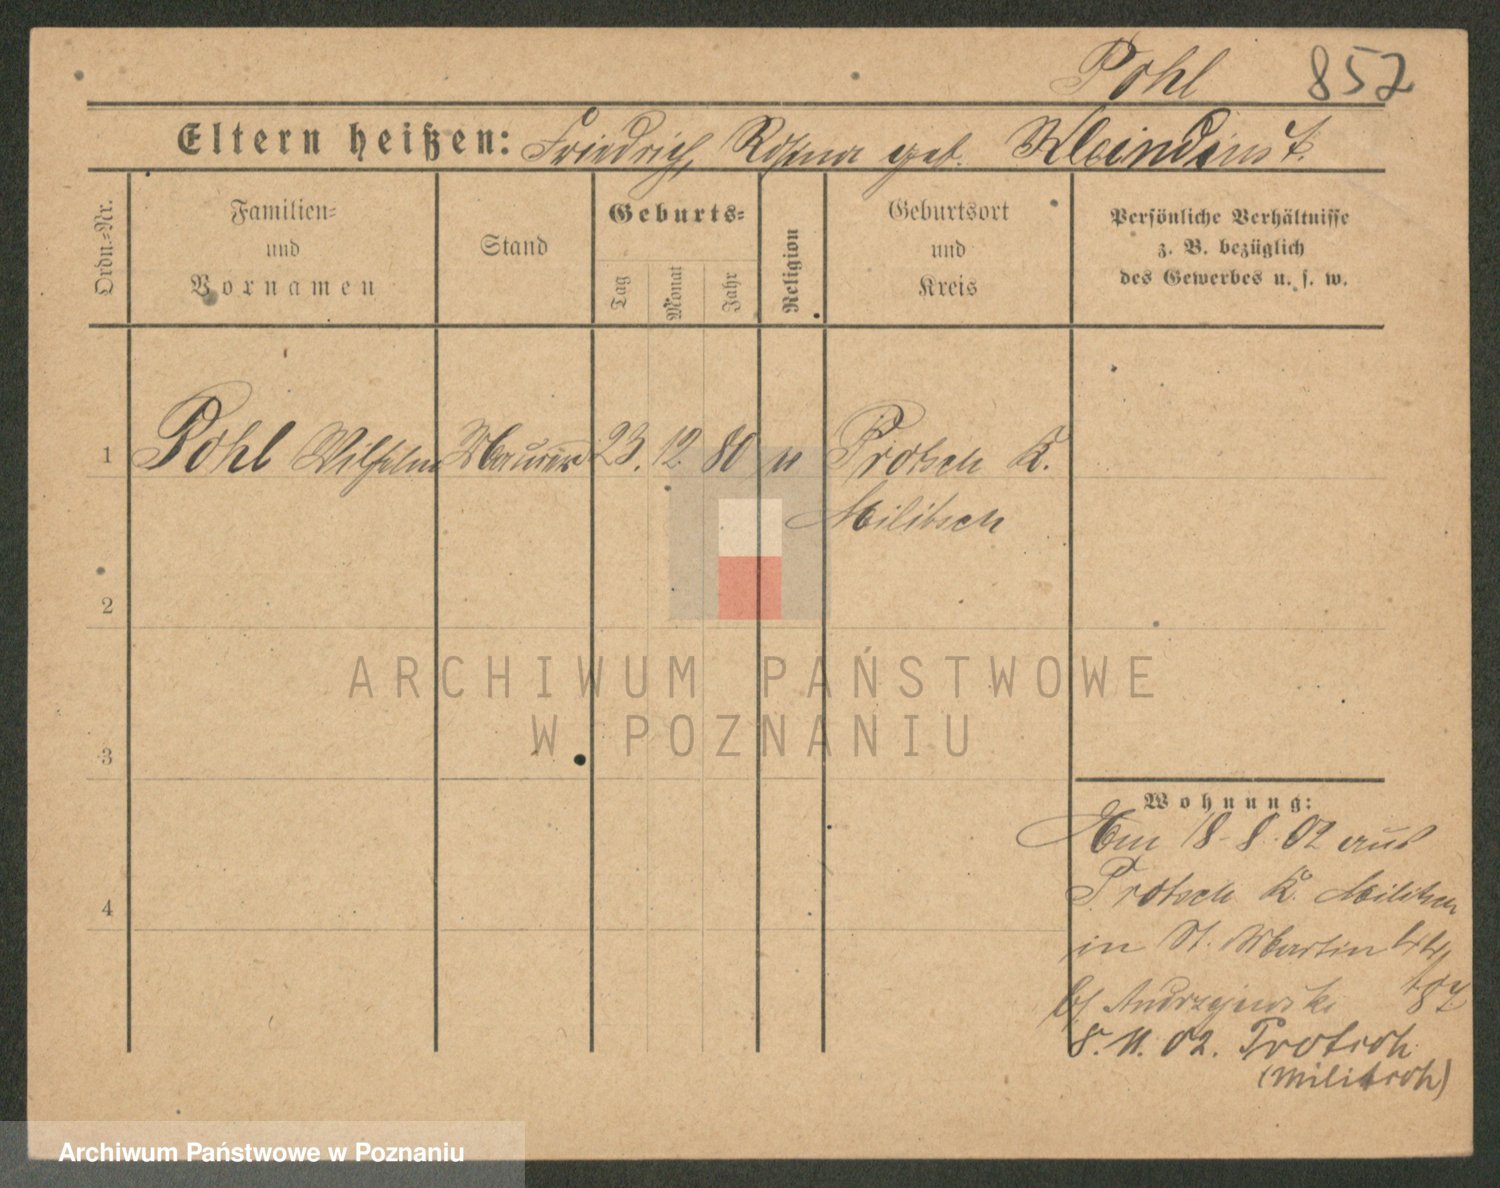 Pohl 852
Eltern heißen: Friedrich, Rosina geb. Kleindinst.
Ordn.-Nr.
Familien-
und
Vornamen
Stand
Geburts-
Tag
Monat
Jahr
Religion
Geburtsort
und
Kreis
Persönliche Verhältnisse
z. B. bezüglich
des Gewerbes u. s. w.
1 Pohl Wilhelm Maurer 23. 12. 80 Protsch K.
Militsch
2
3
4
Wohnung:
Am 18-8.02 aus
Protsch K. Militsch
in St. Martin
b/ Andrzejewski
8.11.02. Protsch
(Militsch)
ARCHIWUM PAŃSTWOWE
W POZNANIU
Archiwum Państwowe w Poznaniu